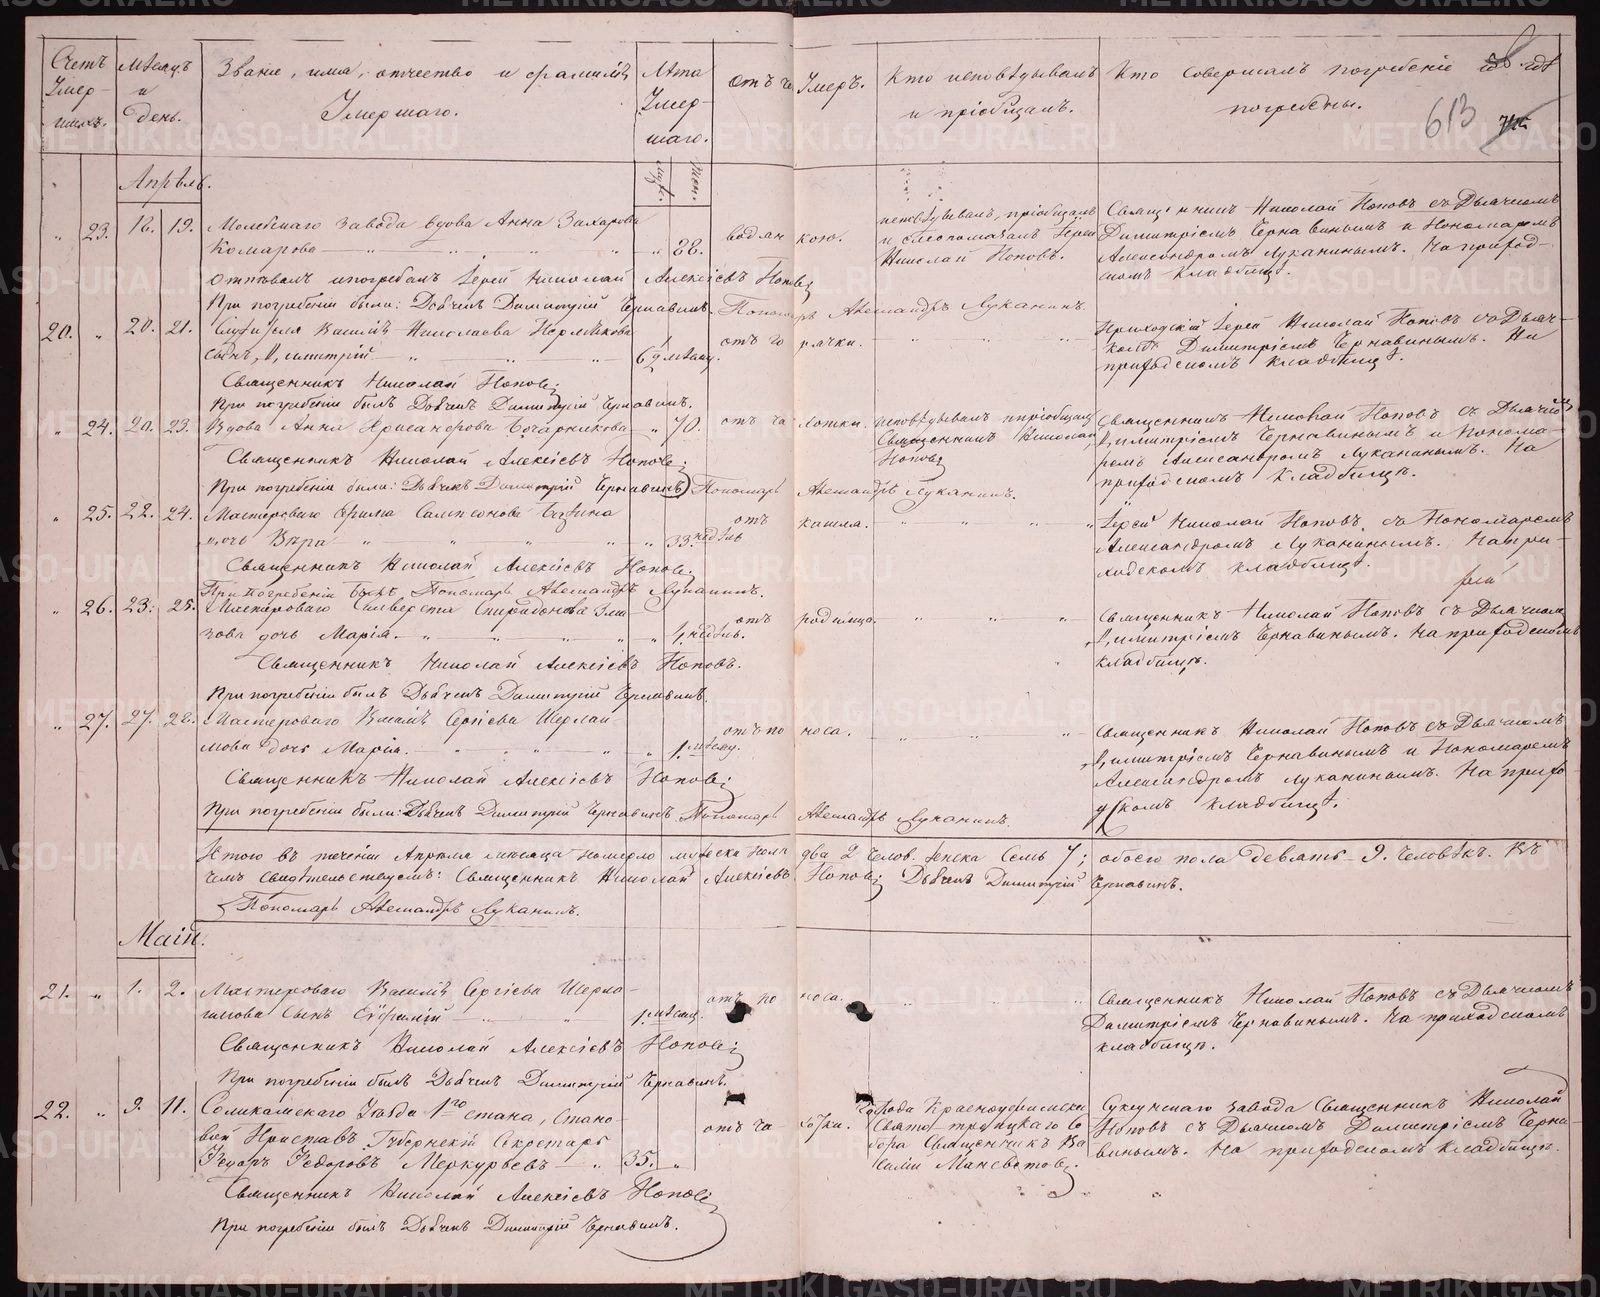 Счетъ Умер-шихъ.
Мѣсяцъ и день.
Званіе, имя, отчество и фамилія Умершаго.
Лѣта Умер-шаго.
Муж. Жен.
Отъ чего Умеръ.
Кто исповѣдывалъ и пріобщалъ.
Кто совершалъ погребеніе и гдѣ погребены.
613
Апрѣль.
" 23. 18. 19. Молебскаго завода вдова Анна Захарова
Комарова " " " " " 88. водянкою.
исповѣдывалъ, пріобщалъ
и елеопомазалъ Іерей
Николай Поповъ.
Священникъ Николай Поповъ съ Дьячкомъ
Димитріемъ Чернавинымъ и Пономаремъ
Александромъ Луканинымъ. На приход-
скомъ кладбищѣ.
Отпѣвалъ и погребалъ Іерей Николай Алексіевъ Поповъ
При погребеніи были: Дьячекъ Димитрій Чернавинъ. Пономарь Александръ Луканинъ.
20. " 20. 21. Василія Николаева
сынъ Димитрій " " " 6 мѣсяц. отъ горячки. " " "
Приходскій Іерей Николай Поповъ со Дьяч-
комъ Димитріемъ Чернавинымъ. На
приходскомъ кладбищѣ.
Священникъ Николай Поповъ
При погребеніи былъ Дьячекъ Димитрій Чернавинъ.
" 24. 20. 23. Вдова Анна Хрисанфова Бочарникова " 70. отъ чахотки.
исповѣдывалъ и пріобщалъ
Священникъ Николай
Поповъ
Священникъ Николай Поповъ съ Дьячкомъ
Димитріемъ Чернавинымъ и Понома-
ремъ Александромъ Луканинымъ. На
приходскомъ кладбищѣ.
Священникъ Николай Алексіевъ Поповъ
При погребеніи были: Дьячекъ Димитрій Чернавинъ Пономарь Александръ Луканинъ.
" 25. 22. 24. Мастероваго Сампсонова
дочь Вѣра " " " " " 33 недѣль отъ кашля. " " "
Іерей Николай Поповъ, съ Пономаремъ
Александромъ Луканинымъ. На при-
ходскомъ кладбищѣ.
Священникъ Николай Алексіевъ Поповъ.
При погребеніи былъ Пономарь Александръ Луканинъ.
" 26. 23. 25. Мастероваго Сильверста Спиридонова
дочь Марія. " " " " " 1 недѣль. отъ родимца. " " "
Священникъ Николай Поповъ съ Дьячкомъ
Димитріемъ Чернавинымъ. На приходскомъ
кладбищѣ.
Священникъ Николай Алексіевъ Поповъ.
При погребеніи былъ Дьячекъ Димитрій Чернавинъ.
" 27. 27. 28. Мастероваго Василія Сергіева Шерлай-
мова дочь Марія. " " " " 1 мѣсяц. отъ поноса. " " "
Священникъ Николай Поповъ съ Дьячкомъ
Димитріемъ Чернавинымъ и Пономаремъ
Александромъ Луканинымъ. На прихо-
дскомъ кладбищѣ.
Священникъ Николай Алексіевъ Поповъ
При погребеніи были: Дьячекъ Димитрій Чернавинъ. Пономарь Александръ Луканинъ.
Итого въ теченіи Апрѣля мѣсяца померло мужеска пола два 2 челов. женска семь 7; обоего пола девять 9. человѣкъ. Въ
чемъ свидѣтельствуемъ: Священникъ Николай Алексіевъ Поповъ Дьячекъ Димитрій Чернавинъ.
Пономарь Александръ Луканинъ.
Маій.
21. " 1. 2. Мастероваго Василія Сергіева
сынъ " " 1 мѣсяц. отъ поноса. " " "
Священникъ Николай Поповъ съ Дьячкомъ
Димитріемъ Чернавинымъ. На приходскомъ
кладбищѣ.
Священникъ Николай Алексіевъ Поповъ
При погребеніи былъ Дьячекъ Димитрій Чернавинъ.
22. " 9. 11. Соликамскаго Уѣзда 1го стана, Стано-
вой Приставъ Губернскій Секретарь
Ѳедоръ Ѳедоровъ Меркурьевъ " 35. " отъ чахотки.
города Красноуфимска
Свято-троицкаго со
бора Священникъ Ва
силій
Суксунскаго завода Священникъ Николай
Поповъ съ Дьячкомъ Димитріемъ Черна-
винымъ. На приходскомъ кладбищѣ.
Священникъ Николай Алексіевъ Поповъ
При погребеніи былъ Дьячекъ Димитрій Чернавинъ.
METRIKI.GASO-URAL.RU